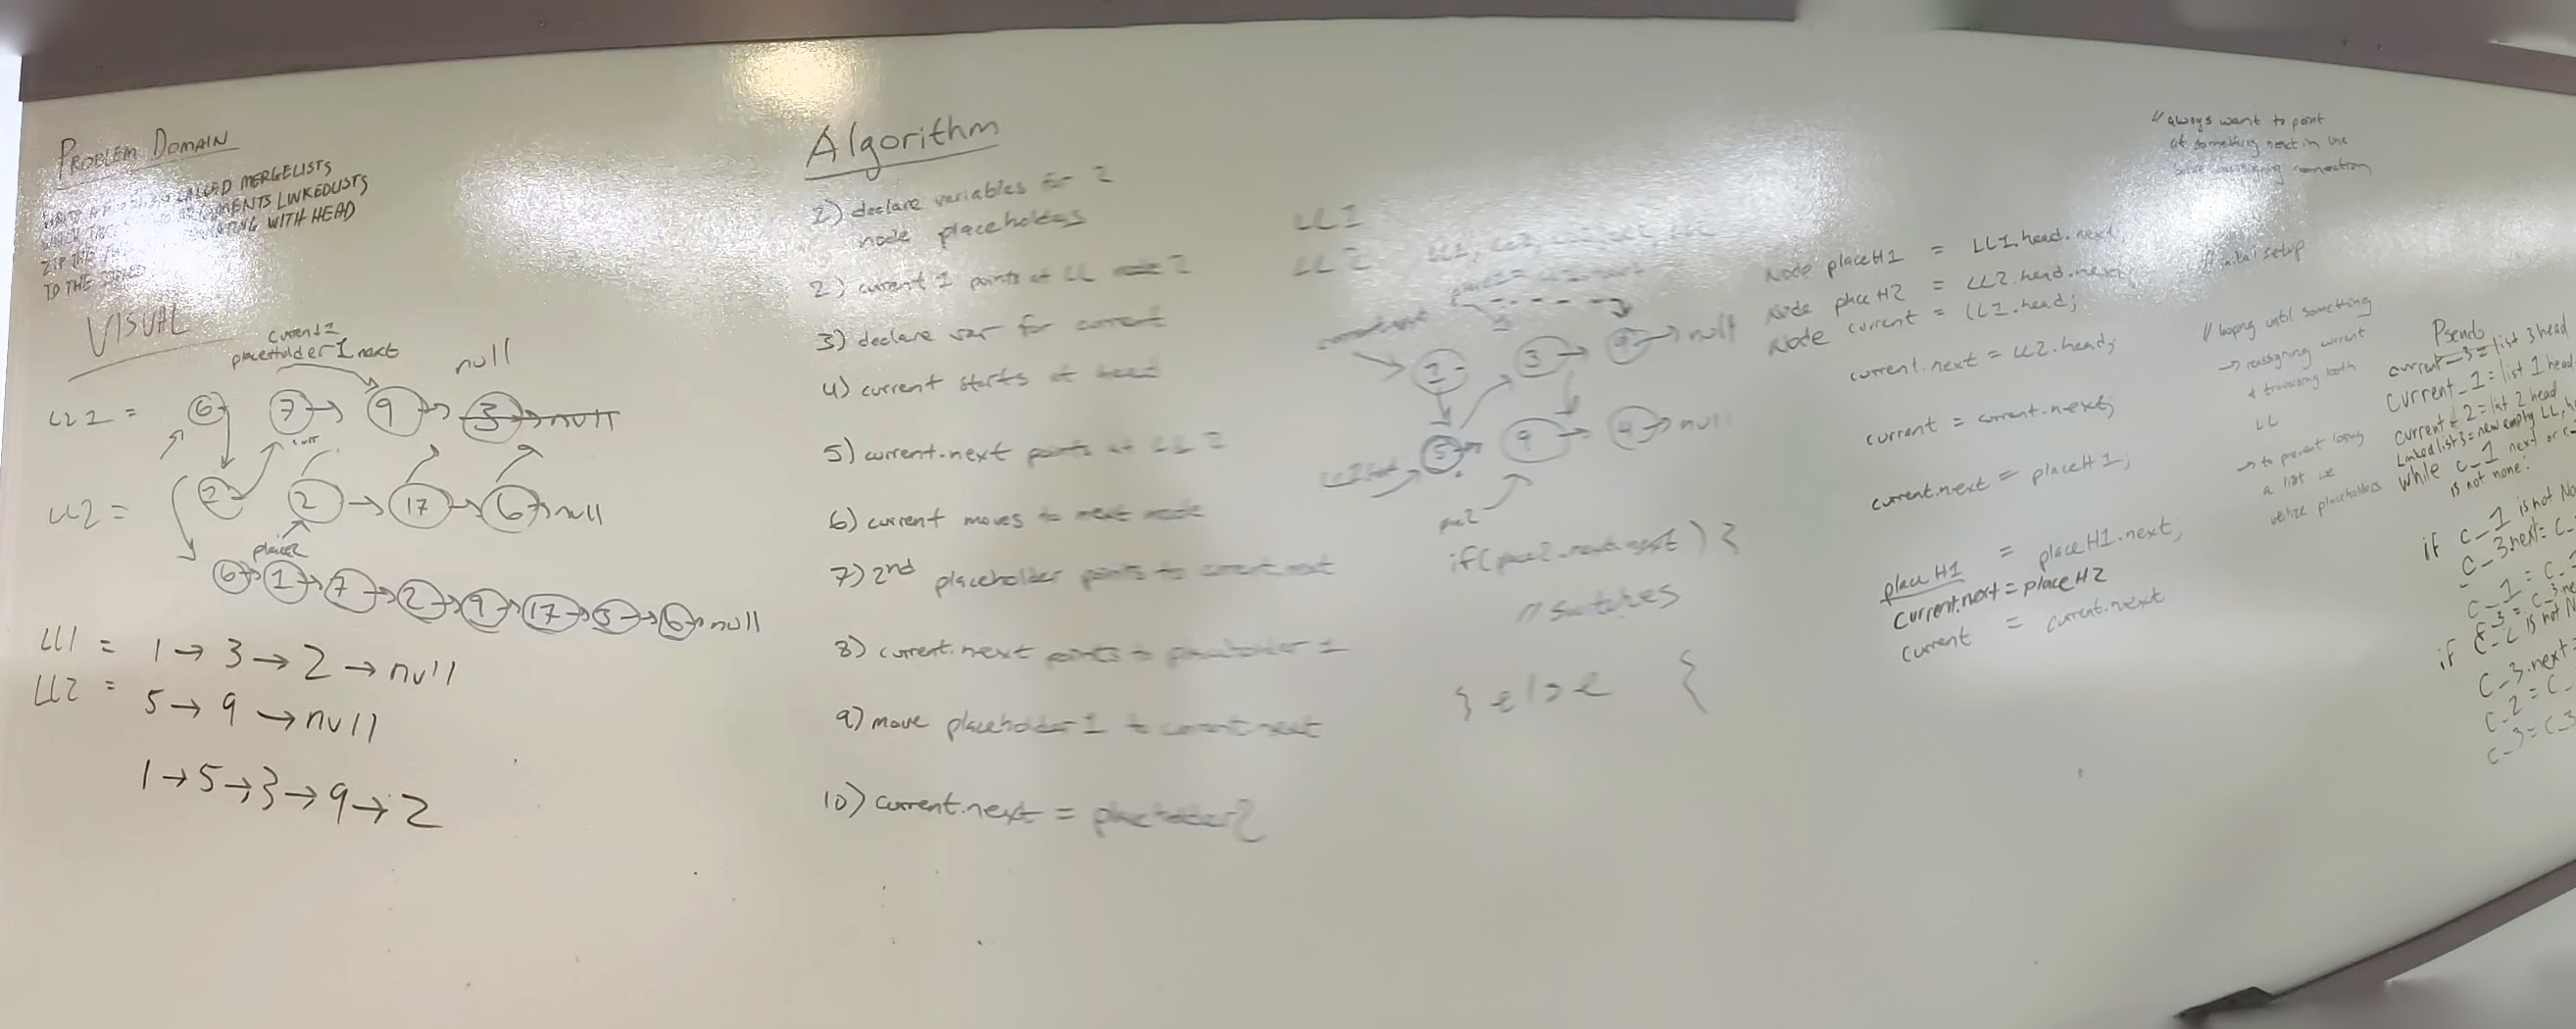 PROBLEM DOMAIN
CALLED MERGELISTS
LINKEDLISTS
WITH HEAD
ZIP THE
TO THE
VISUAL
current2
placeholder1 next
null
LL1 = 6 7 → 9 → 3 → null
curr
LL2 = 2 2 → 17 → 6 → null
place2
6 → 1 → 7 → 2 → 9 → 17 → 3 → 6 → null
LL1 = 1 → 3 → 2 → null
LL2 = 5 → 9 → null
1 → 5 → 3 → 9 → 2
Algorithm
1) declare variables for 2
node placeholders
2) current 1 points at LL node 2
3) declare var for current
4) current starts at head
5) current.next points at LL 2
6) current moves to next node
7) 2nd placeholder points to current.next
8) current.next points to placeholder 1
9) move placeholder 1 to current.next
10) current.next = placeholder2
LL1
LL2
1 3 → 9 → null
5 → 9 → 4 → null
if(place2.next.next) {
// switches
} else {
Node placeH1 = LL1.head.next;
Node placeH2 = LL2.head.next;
// initial setup
Node current = LL1.head;
current.next = LL2.head;
current = current.next;
current.next = placeH1;
placeH1 = placeH1.next;
current.next = placeH2
current = current.next
// always want to point
at something next in line
connection
// looping until something
→ reassigning current
+ traversing both
LL
→ to prevent losing
a list we
utilize placeholders
Pseudo
current_3 = list 3 head
current_1 = list 1 head
current_2 = list 2 head
Linked list3 = new empty LL,
while c_1 next or c_
is not none:
if c_1 is not No
c_3.next = c_
c_1 = c_
c_3 = c_3.ne
if c_2 is not N
c_3.next =
c_2 = c_
c_3 = c_3